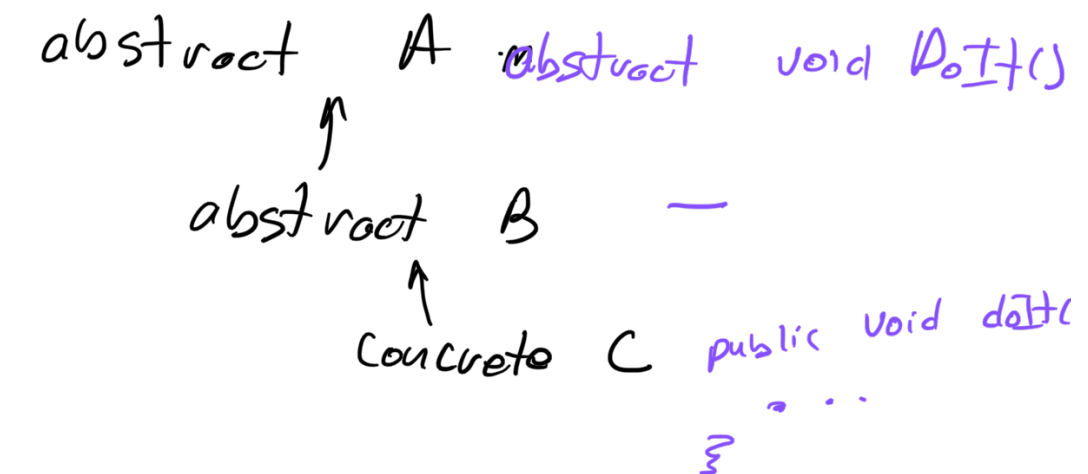 abstract A abstract void DoIt()
abstract B —
concrete C public void doIt(
. . .
}